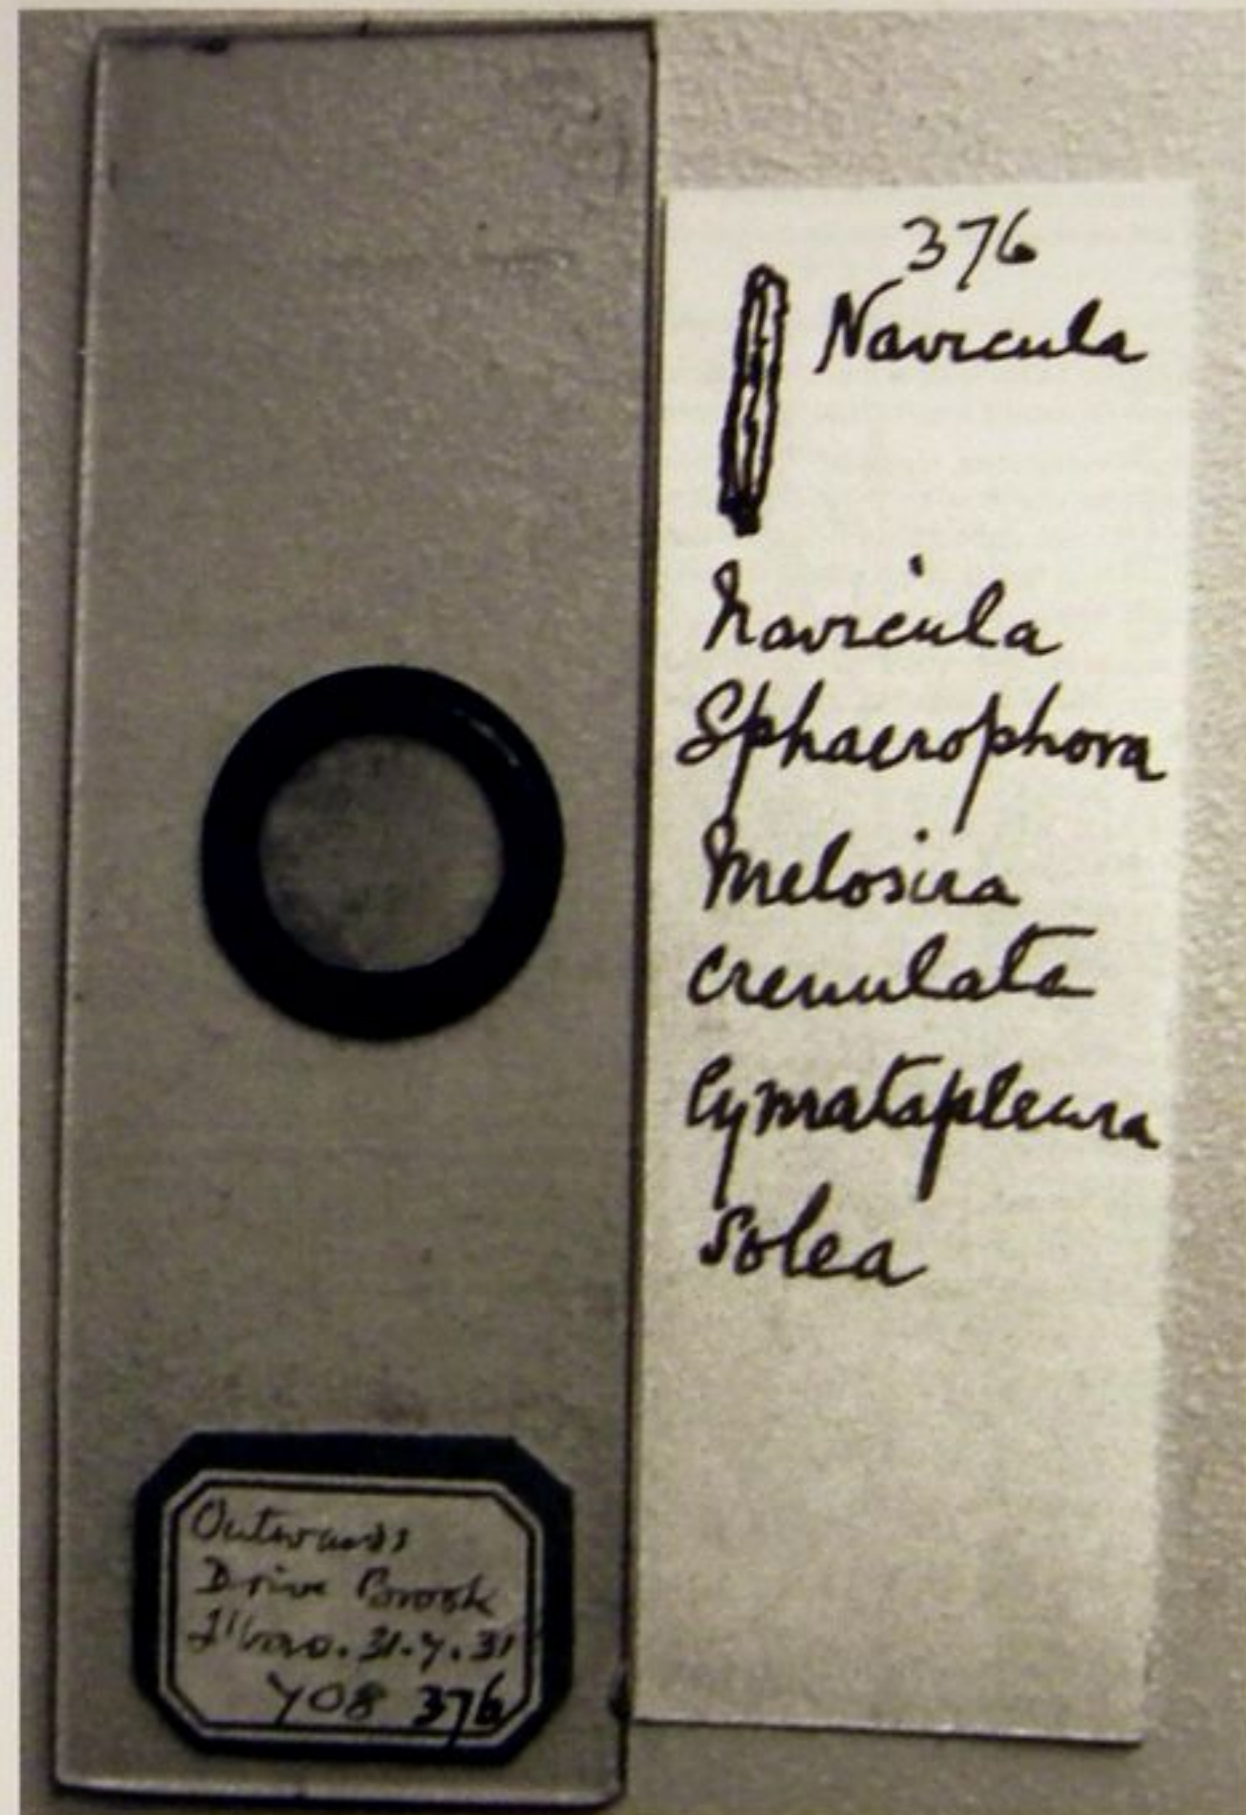 376
Navicula
Navicula
Sphaerophora
Melosira
crenulata
Cymatapleura
Solea
Outwoods
Drive Brook
L'boro. 31.7.31
708 376